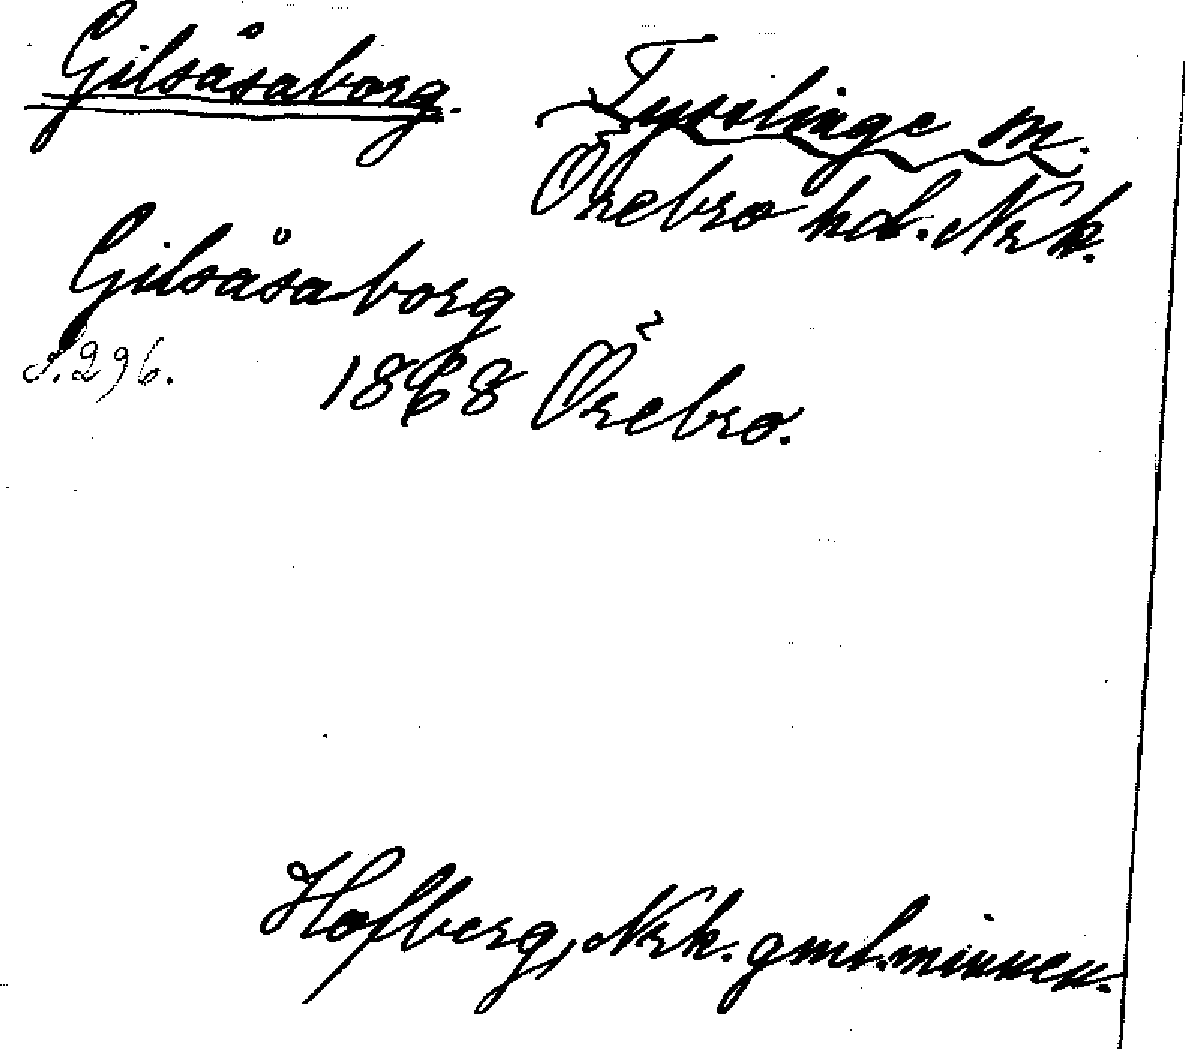 Gilsåsaborg.
Tysslinge sn.
Örebro hd. Nrk.
Gilsåsaborg
s. 296.
1868 Örebro.
Hofberg, Nrk. gml. minnen.